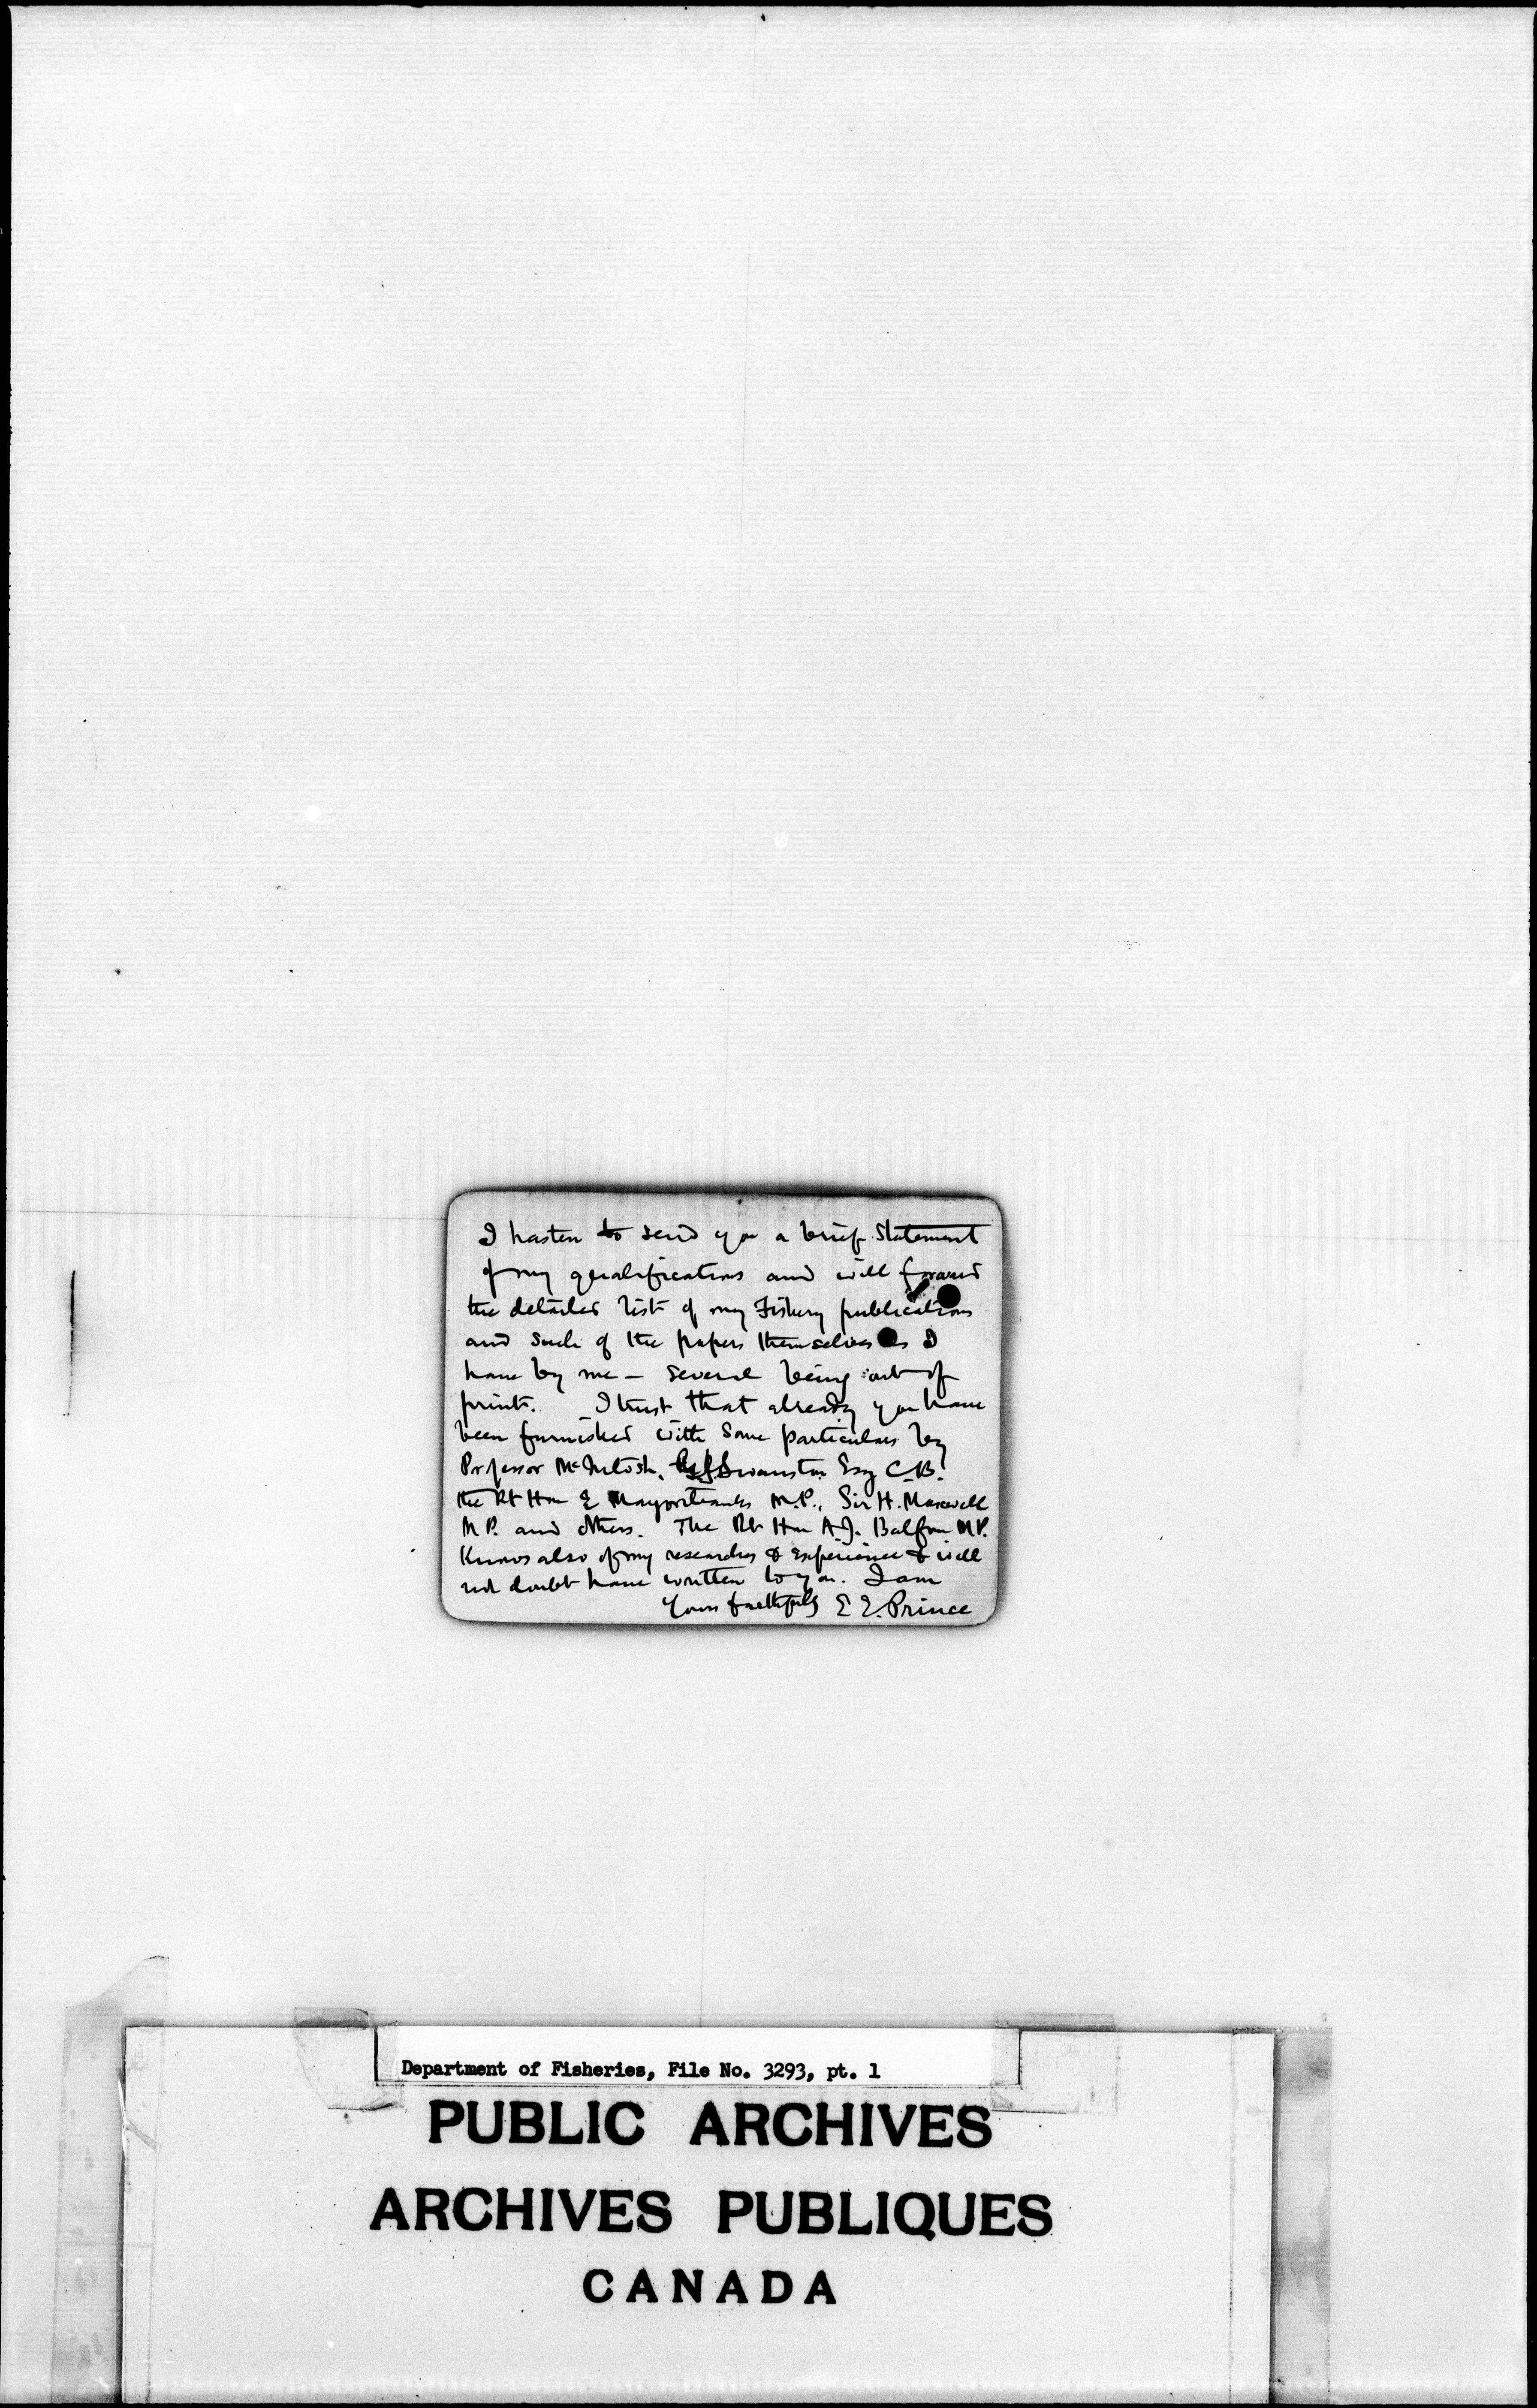 I hasten to send you a brief statement
of my qualifications and will forward
the detailed list of my Fishery publications
and such of the papers themselves as I
have by me – several being out of
print. I trust that already you have
been furnished with some particulars by
Professor McIntosh, Swanston Esq C.B.
the Rt Hon E Marjoribanks M.P., Sir H. Maxwell
M.P. and others. The Rt Hon A.J. Balfour M.P.
knows also of my researches & experience & will
not doubt have written to you. I am
Yours faithfully E E. Prince
Department of Fisheries, File No. 3293, pt. 1
PUBLIC ARCHIVES
ARCHIVES PUBLIQUES
CANADA